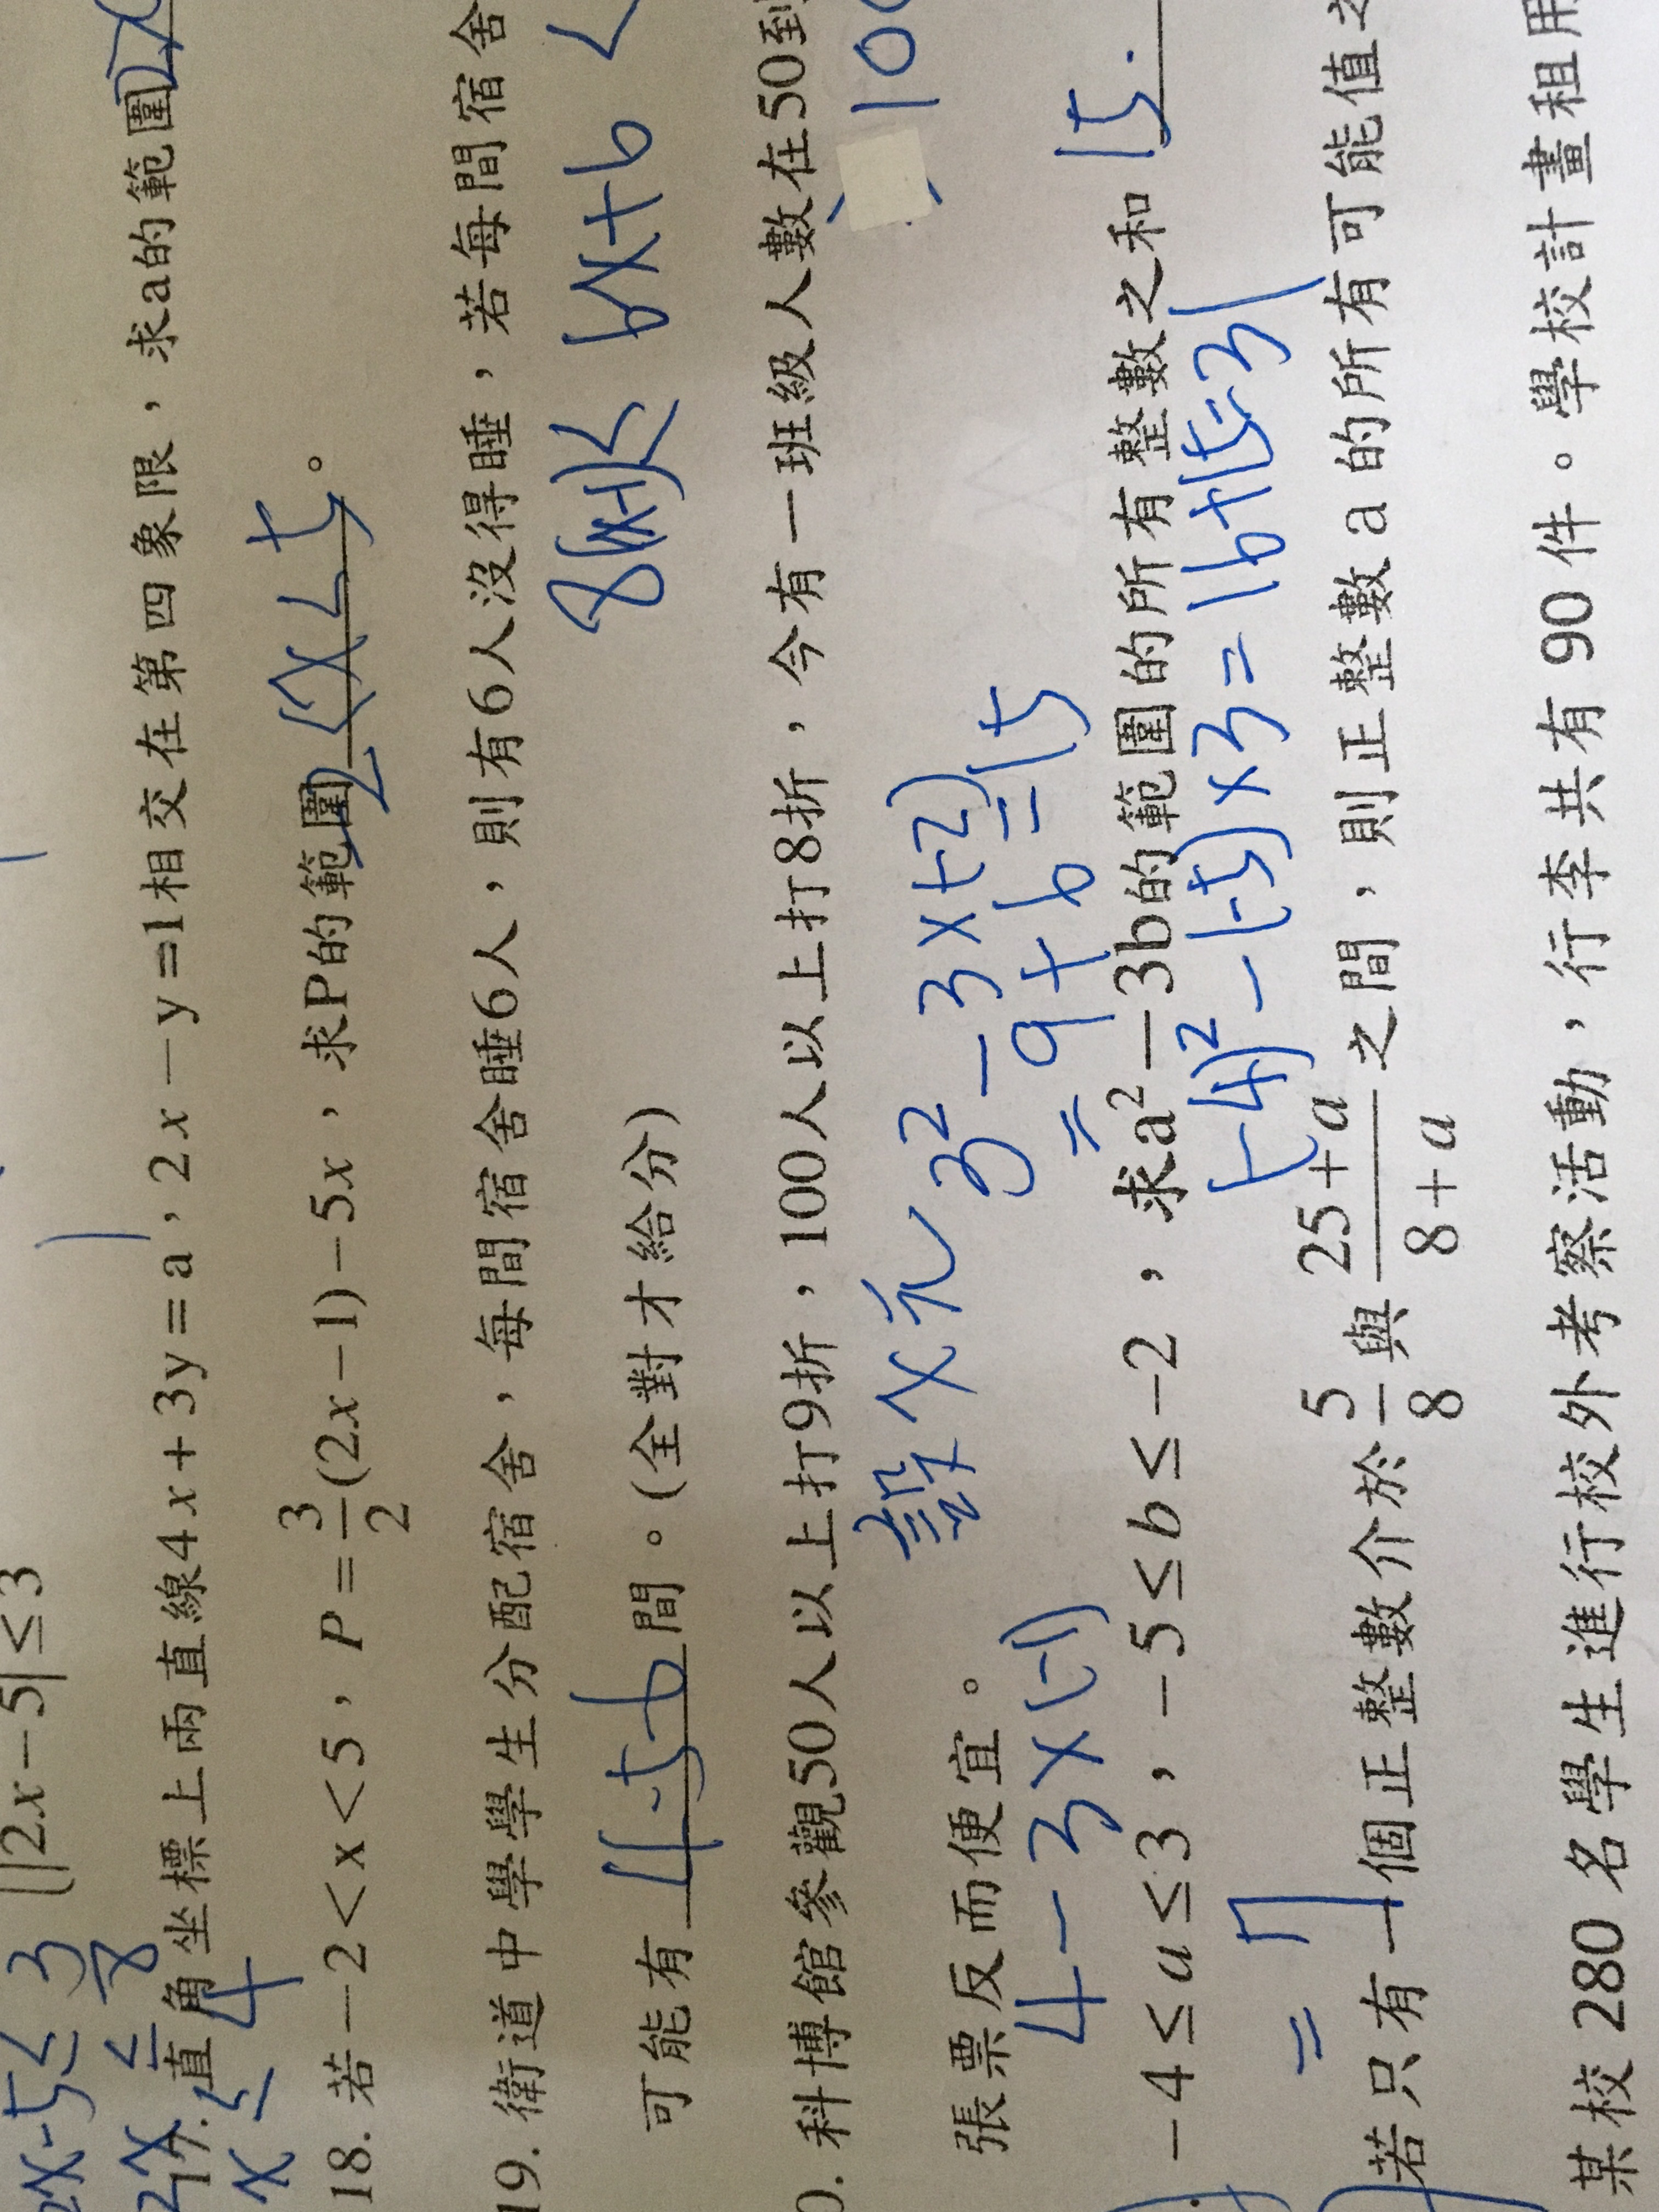 |2x−5|≤3
2x-5≤3
2x≤8
x≤4
17. 直角坐標上兩直線4x+3y=a，2x−y=1相交在第四象限，求a的範圍
18. 若−2<x<5，P=3/2(2x−1)−5x，求P的範圍 。
19. 衛道中學學生分配宿舍，每間宿舍睡6人，則有6人沒得睡，若每間宿舍
8(x-1)< 6x+6 <
可能有 4.5.6 間。(全對才給分)
0. 科博館參觀50人以上打9折，100人以上打8折，今有一班級人數在50到
設x元
張票反而便宜。
4-3×(-1)
=7
3²-3×(-2)
=9+6=15
−4≤a≤3，−5≤b≤−2，求a²−3b的範圍的所有整數之和
(-4)²-(-5)×3=16+15=31
若只有一個正整數介於5/8與25+a/8+a之間，則正整數a的所有可能值之
某校 280 名學生進行校外考察活動，行李共有 90 件。學校計畫租用